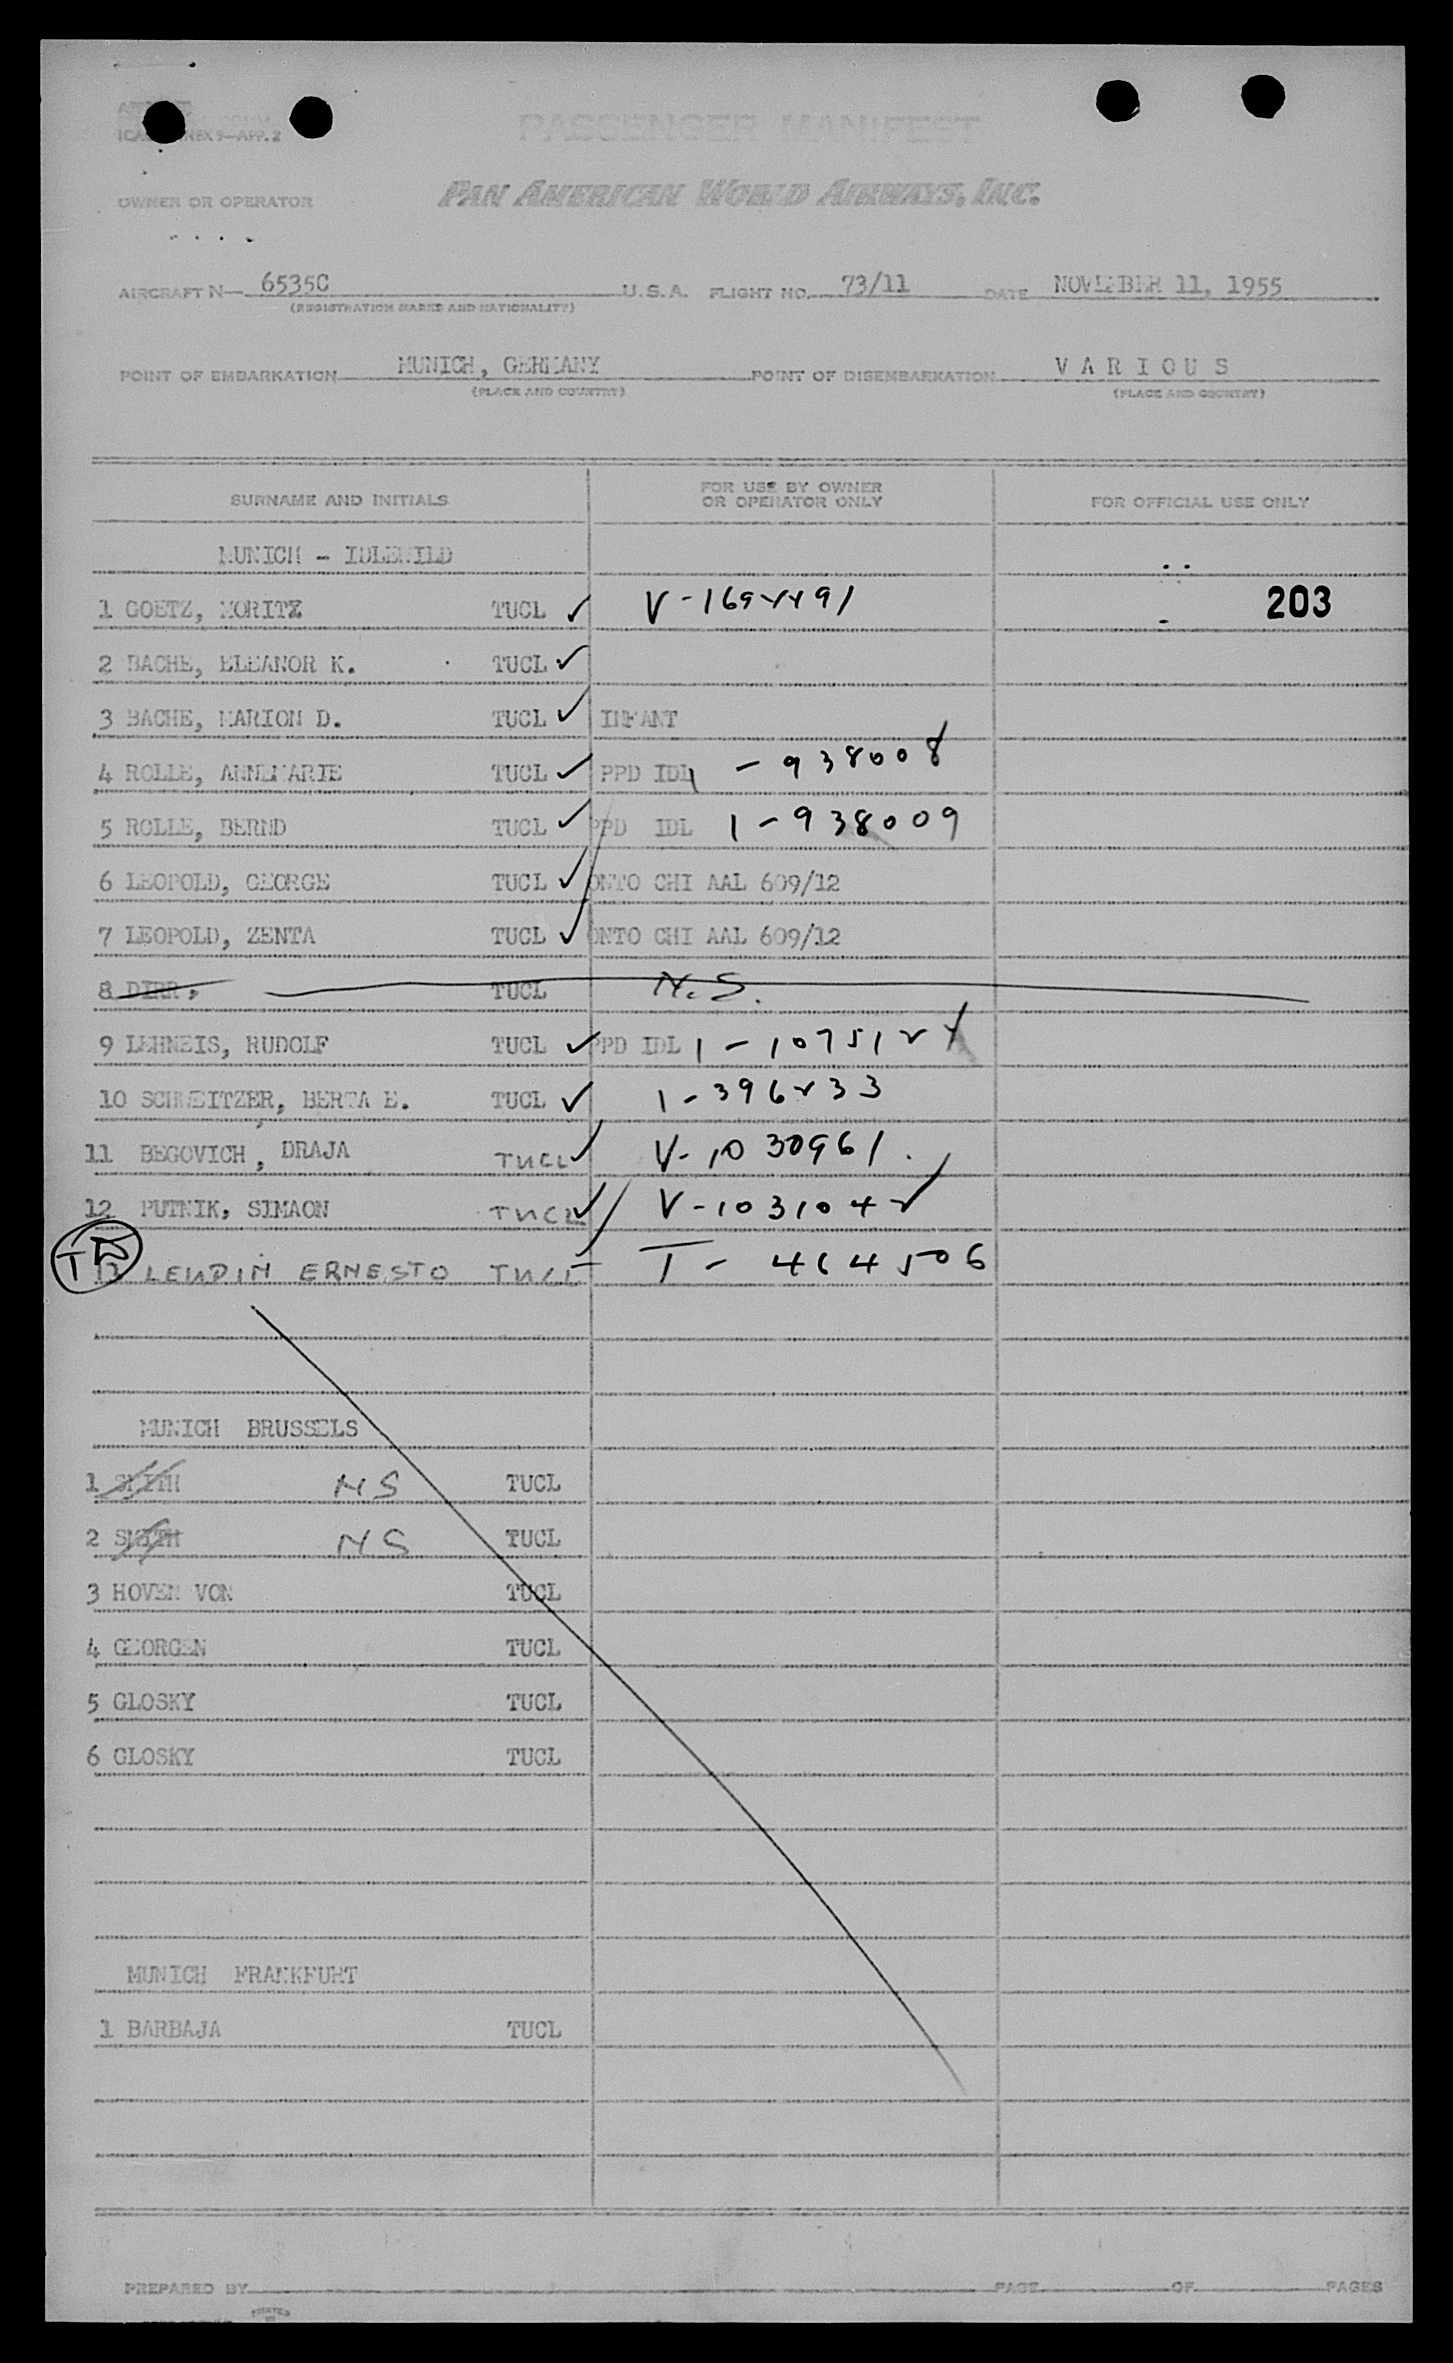 ICAO ANNEX 9—APP. 2
PASSENGER MANIFEST
OWNER OR OPERATOR PAN AMERICAN WORLD AIRWAYS, INC.
AIRCRAFT N— 6535C U.S.A. FLIGHT NO. 73/11 DATE NOVEMBER 11, 1955
(REGISTRATION MARKS AND NATIONALITY)
POINT OF EMBARKATION MUNICH, GERMANY POINT OF DISEMBARKATION VARIOUS
(PLACE AND COUNTRY) (PLACE AND COUNTRY)
SURNAME AND INITIALS FOR USE BY OWNER OR OPERATOR ONLY FOR OFFICIAL USE ONLY
MUNICH - IDLEWILD
1 GOETZ, MORITZ TUCL ✓ V-1692291 203
2 BACHE, ELEANOR K. TUCL ✓
3 BACHE, MARION D. TUCL ✓ INFANT
4 ROLLE, ANNEMARIE TUCL ✓ PPD IDL 1-938008
5 ROLLE, BERND TUCL ✓ PPD IDL 1-938009
6 LEOPOLD, GEORGE TUCL ✓ ONTO CHI AAL 609/12
7 LEOPOLD, ZENTA TUCL ✓ ONTO CHI AAL 609/12
8 DIRR, TUCL N.S.
9 LEHNEIS, RUDOLF TUCL ✓ PPD IDL 1-107512
10 SCHWEITZER, BERTA E. TUCL ✓ 1-396233
11 BEGOVICH, DRAJA TUCL ✓ V-1030961
12 PUTNIK, SIMAON TUCL ✓ V-1031042
13 LENDIN ERNESTO TUCL T-464506
MUNICH BRUSSELS
1 SMITH NS TUCL
2 SMITH NS TUCL
3 HOVEN VON TUCL
4 GEORGEN TUCL
5 GLOSKY TUCL
6 GLOSKY TUCL
MUNICH FRANKFURT
1 BARBAJA TUCL
PREPARED BY PAGE OF PAGES